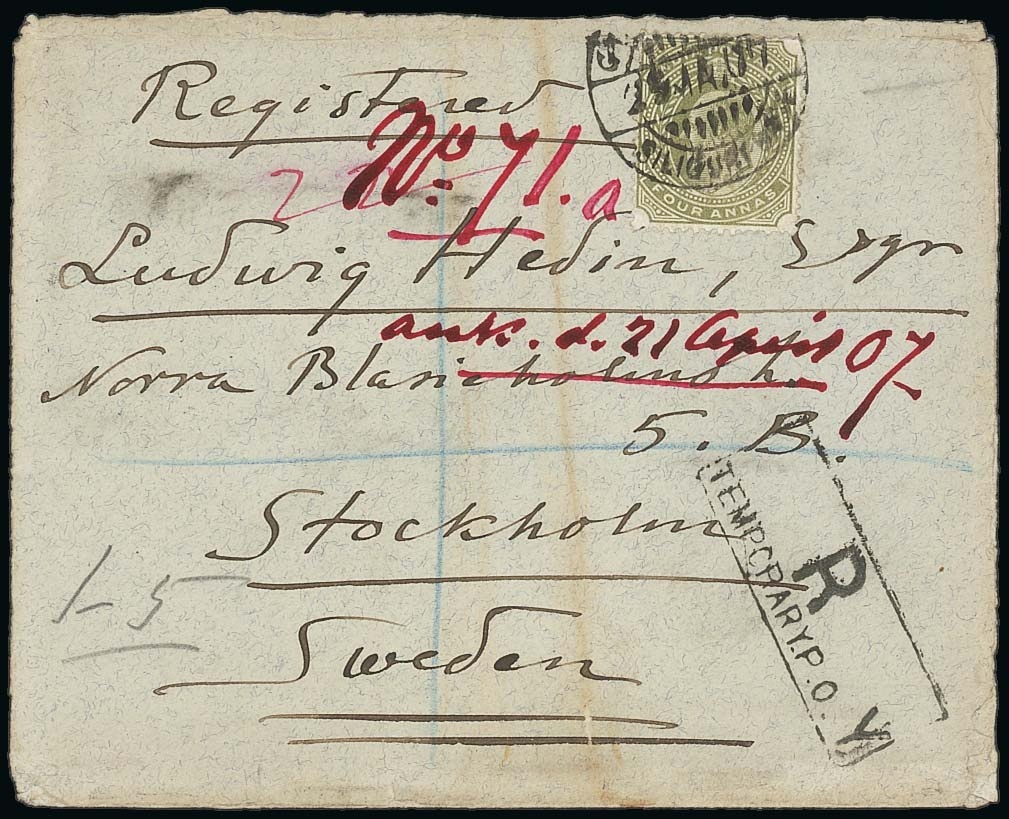 Registered
No. 71.a
FOUR ANNAS
SILIGURI
Ludwig Hedin,
ank. d. 21 April 07.
Norra Blasieholmsh.
5. B.
Stockholm
TEMPORARY.P.O.
R
1-5
Sweden